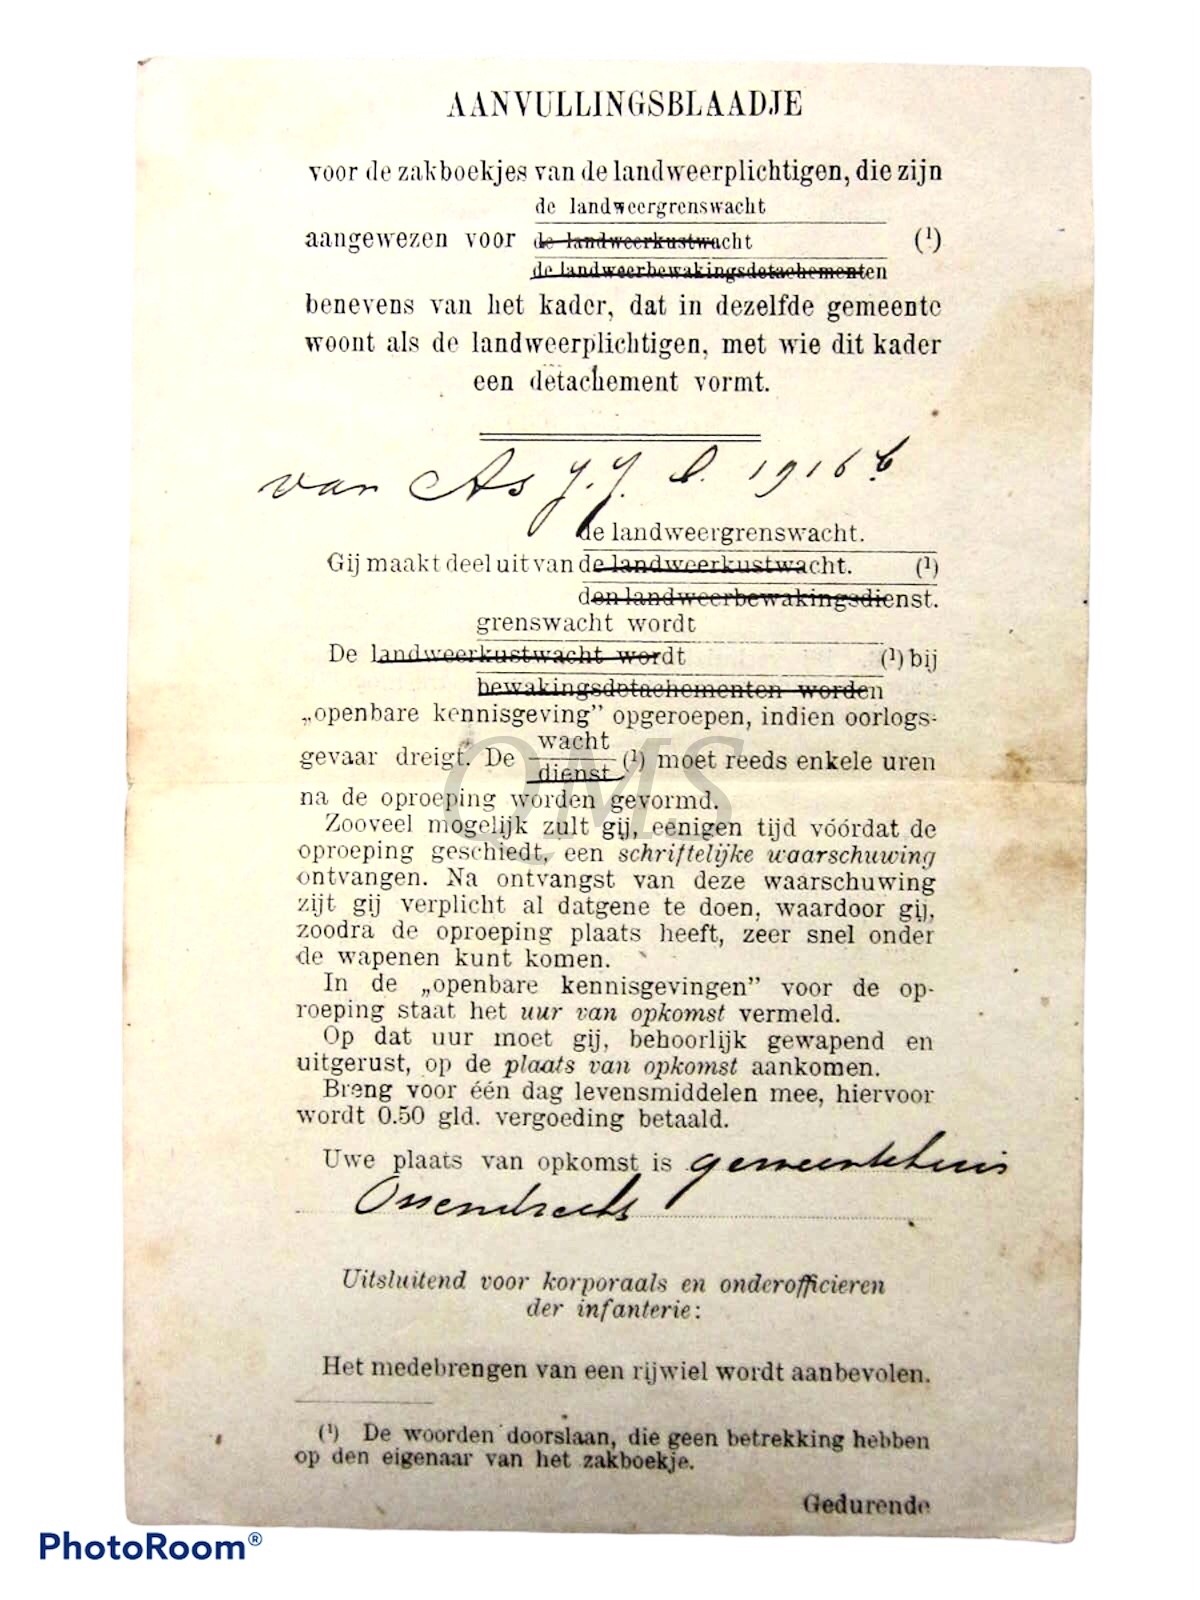 AANVULLINGSBLAADJE
voor de zakboekjes van de landweerplichtigen, die zijn
de landweergrenswacht
aangewezen voor de landweerkustwacht (¹)
de landweerbewakingsdetachementen
benevens van het kader, dat in dezelfde gemeente
woont als de landweerplichtigen, met wie dit kader
een detachement vormt.
van As J. J. 1916
de landweergrenswacht.
Gij maakt deel uit van de landweerkustwacht. (¹)
den landweerbewakingsdienst.
grenswacht wordt
De landweerkustwacht wordt (¹) bij
bewakingsdetachementen worden
„openbare kennisgeving” opgeroepen, indien oorlogs-
wacht
gevaar dreigt. De (¹) moet reeds enkele uren
dienst
na de oproeping worden gevormd.
Zooveel mogelijk zult gij, eenigen tijd vóórdat de
oproeping geschiedt, een schriftelijke waarschuwing
ontvangen. Na ontvangst van deze waarschuwing
zijt gij verplicht al datgene te doen, waardoor gij,
zoodra de oproeping plaats heeft, zeer snel onder
de wapenen kunt komen.
In de „openbare kennisgevingen” voor de op-
roeping staat het uur van opkomst vermeld.
Op dat uur moet gij, behoorlijk gewapend en
uitgerust, op de plaats van opkomst aankomen.
Breng voor één dag levensmiddelen mee, hiervoor
wordt 0.50 gld. vergoeding betaald.
Uwe plaats van opkomst is gemeentehuis
Ossendrecht
Uitsluitend voor korporaals en onderofficieren
der infanterie:
Het medebrengen van een rijwiel wordt aanbevolen.
(¹) De woorden doorslaan, die geen betrekking hebben
op den eigenaar van het zakboekje.
Gedurende
QMS
PhotoRoom®